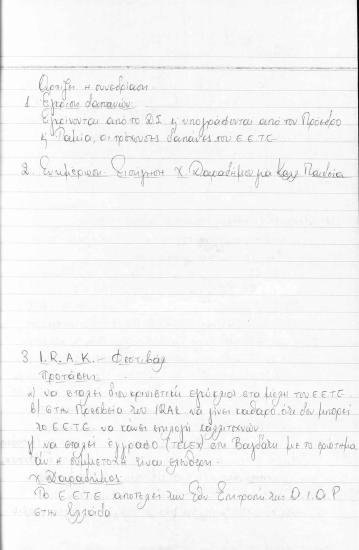 Αρχίζει η συνεδρίαση
1. Έγκριση δαπανών
Εγκρίνονται από το Δ.Σ. & υπογράφονται από τον Πρόεδρο
& Ταμία, οι τρέχουσες δαπάνες του Ε.Ε.Τ.Ε.
2. Ενημέρωση - Εισήγηση Χ. Δαραδήμου για Καλλ. Παιδεία
3. I.R.A.K. - Φεστιβάλ
Προτάσεις
α) να σταλεί διευκρινιστική εγκύκλιος στα μέλη του Ε.Ε.Τ.Ε.
β) στην Πρεσβεία του IRAK να γίνει καθαρό ότι δεν μπορεί
το Ε.Ε.Τ.Ε. να κάνει επιλογή καλλιτεχνών
γ) να σταλεί έγγραφο (TELEX) στη Βαγδάτη με το ερώτημα
αν η συμμετοχή είναι ελεύθερη.
Χ. Δαραδήμος:
Το Ε.Ε.Τ.Ε. αποτελεί την Εθν. Επιτροπή της D.I.A.P
στην Ελλάδα